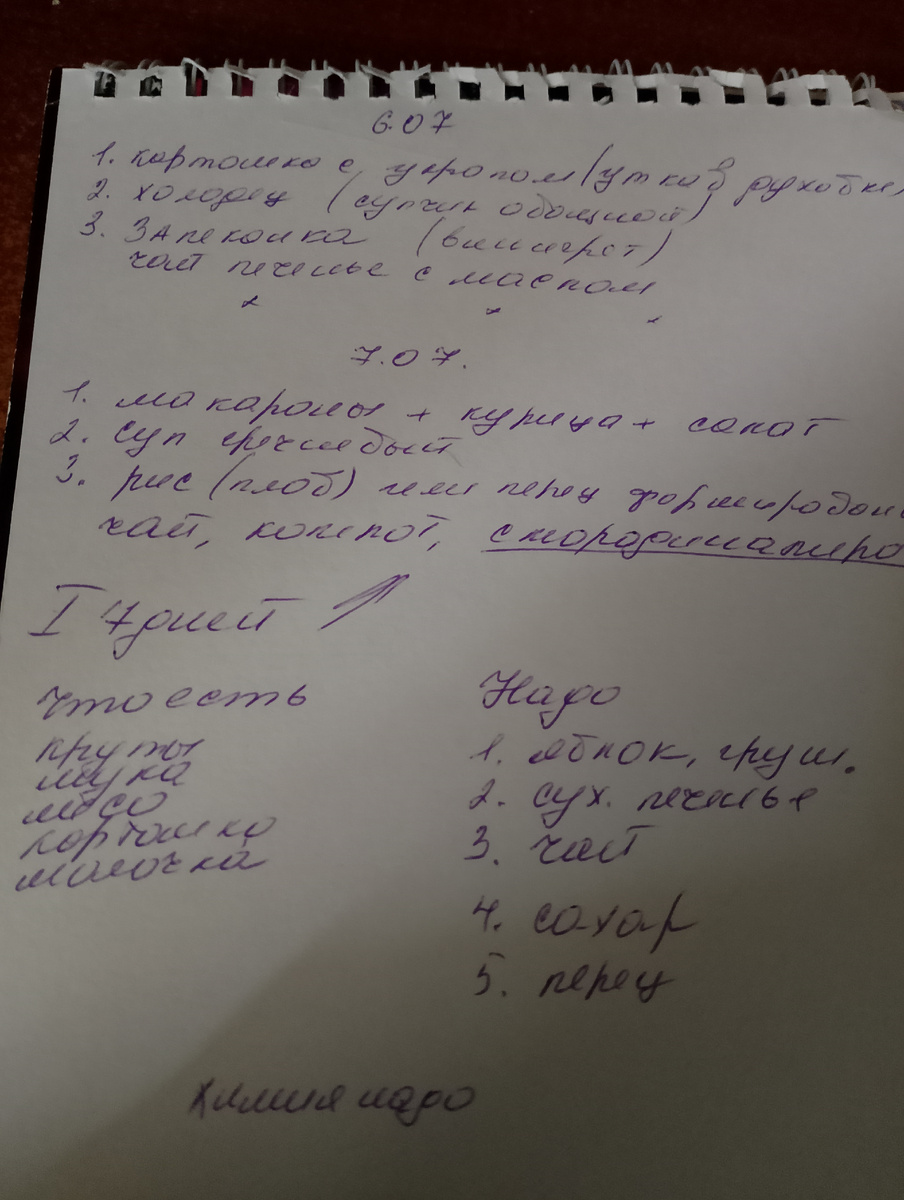 6.07
1. картошка с укропом (утка в духовке)
2. холодец (супчик овощной)
3. Запеканка (винегрет)
чай печенье с маслом
7.07.
1. макароны + курица + салат
2. суп гречневый
3. рис (плов) или перец
чай, компот,
I 7 дней
Что есть
крупы
мука
мясо
картошка
молочка
Надо
1. яблок, груш.
2. сух. печенье
3. чай
4. сахар
5. перец
Химия надо